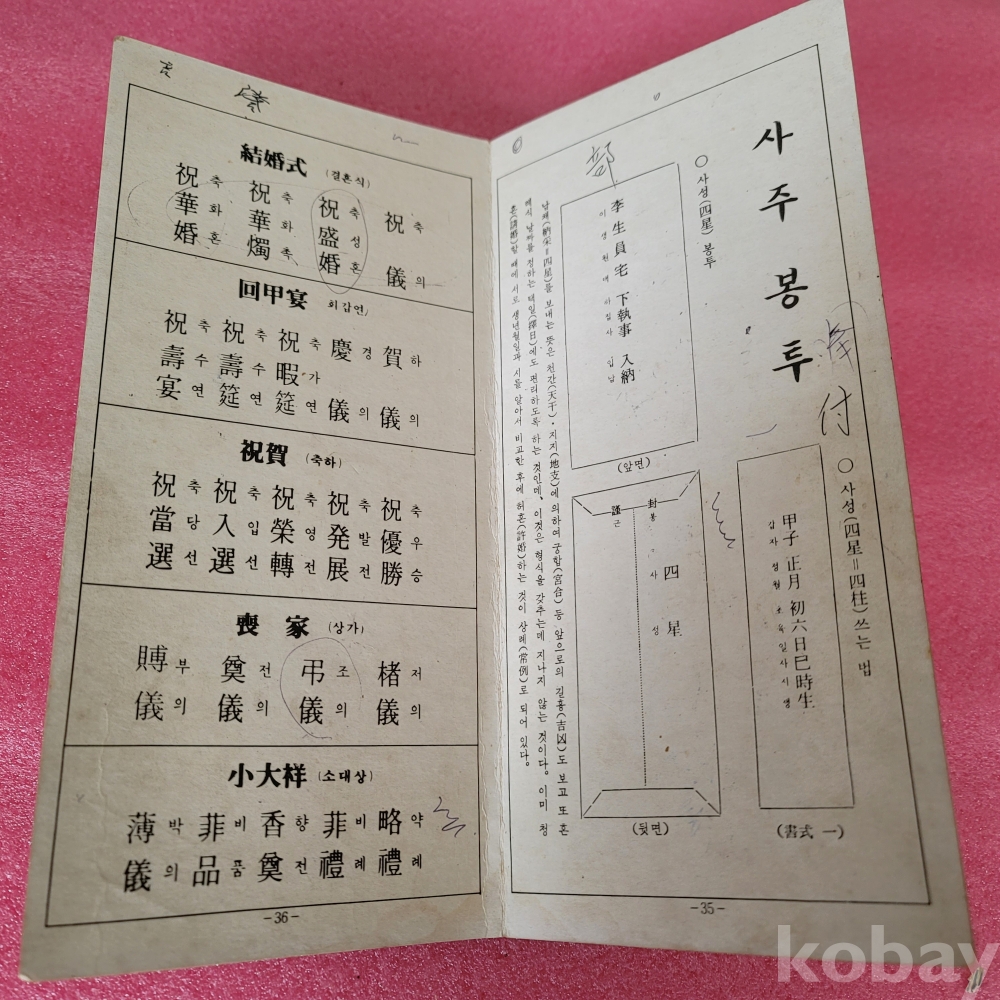 사주봉투
○사성(四星=四柱)쓰는 법
甲子 正月 初六日巳時生
갑자 정월 초육일사시생
(書式 一)
○사성(四星)봉투
李生員宅 下執事 入納
이생원댁 하집사 입납
(앞면)
謹封
근봉
四星
사성
(뒷면)
납채(納采=四星)를 보내는 뜻은 천간(天干)·지지(地支)에 의하여 궁합(宮合)등 앞으로의 길흉(吉凶)도 보고 또 혼
례식 날짜를 정하는 택일(擇日)에도 편리하도록 하는 것인데, 이것은 형식을 갖추는데 지나지 않는 것이다. 이미 청
혼(請婚)할 때에 서로 생년월일과 시를 알아서 비교한 후에 허혼(許婚)하는 것이 상례(常例)로 되어 있다.
部
付
-35-
結婚式 (결혼식)
祝儀 축의
祝盛婚 축성혼
祝華燭 축화촉
祝華婚 축화혼
回甲宴 회갑연)
賀儀 하의
慶儀 경의
祝暇筵 축가연
祝壽筵 축수연
祝壽宴 축수연
祝賀 (축하)
祝優勝 축우승
祝発展 축발전
祝榮轉 축영전
祝入選 축입선
祝當選 축당선
喪家 (상가)
楮儀 저의
弔儀 조의
奠儀 전의
賻儀 부의
小大祥 (소대상)
略禮 약례
菲禮 비례
香奠 향전
菲品 비품
薄儀 박의
-36-
kobay